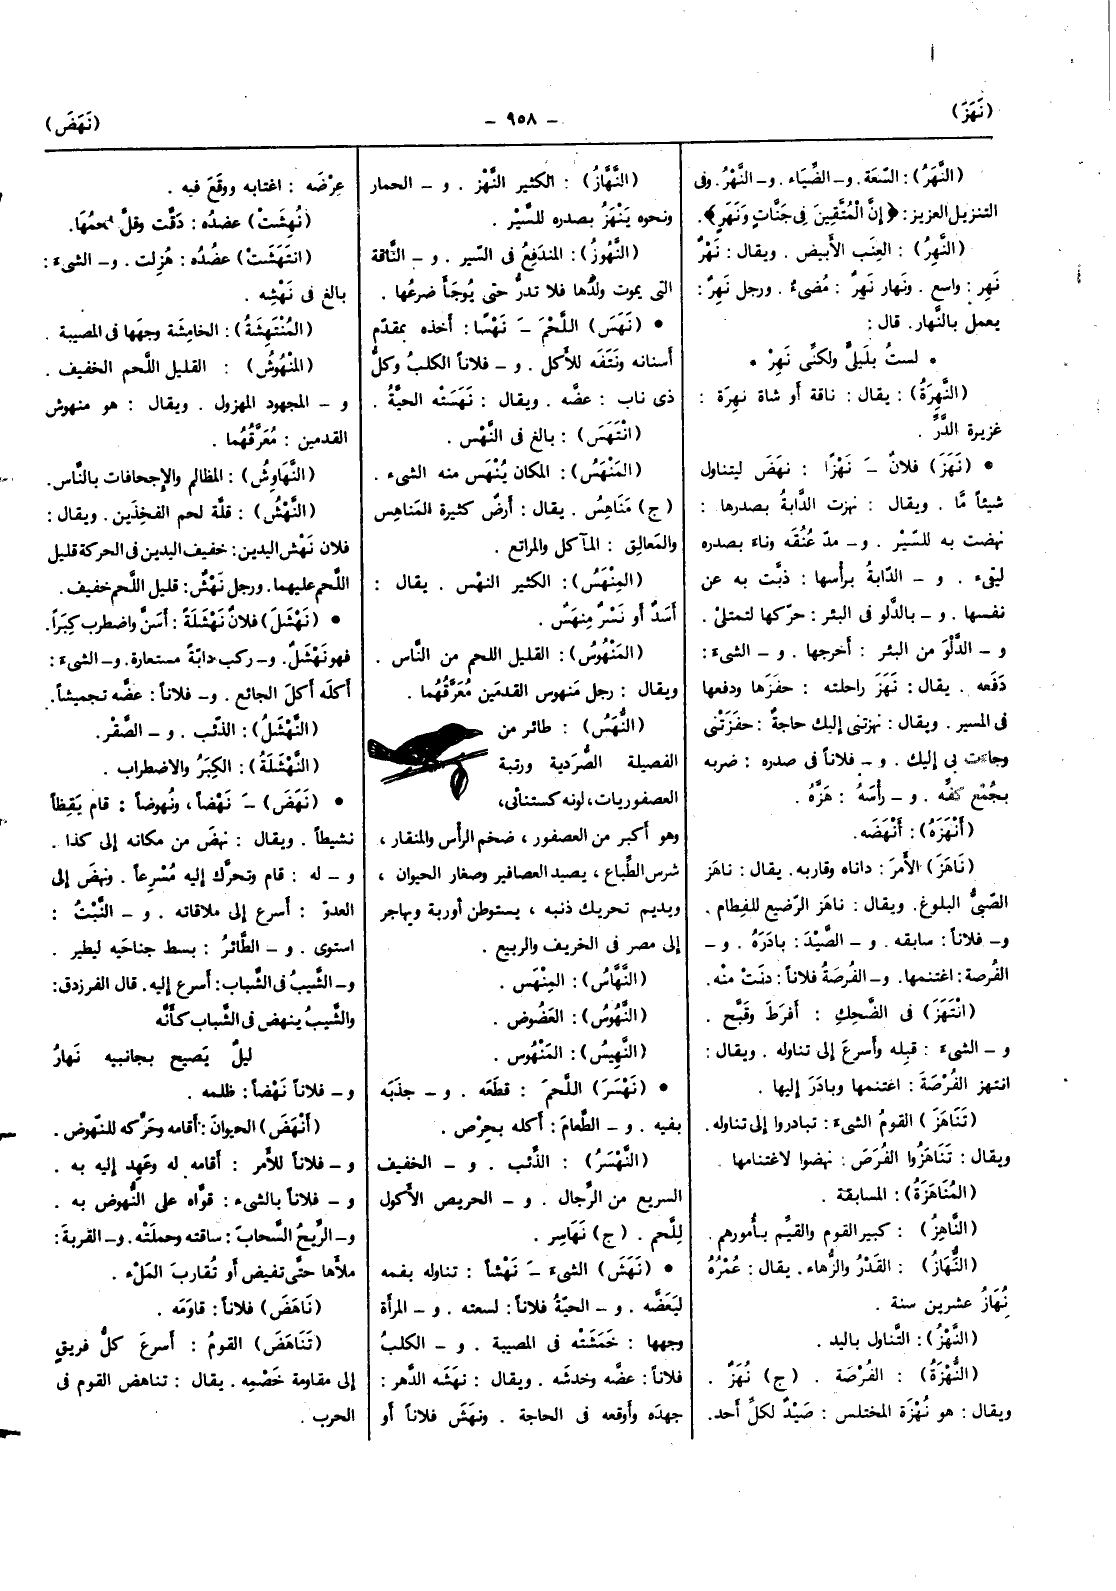 (نَهَزَ)
– ٩٥٨ –
(نَهَضَ)
(النَّهَرُ): السَّعَة. و– الضِّيَاء. و– النَّهْرُ. وفى
التنزيل العزيز: ﴿إِنَّ الْمُتَّقِينَ فِى جَنَّاتٍ وَنَهَرٍ﴾.
(النَّهِرُ) : العِنَب الأَبيض . ويقال : نَهْرٌ
نَهِر : واسع . ونَهار نَهِرٌ : مُضىءٌ . ورجل نَهِرٌ :
يعمل بالنَّهار. قال :
• لستُ بلَيلىٍّ ولكنِّى نَهِرْ •
(النَّهِرَةُ) : يقال : ناقة أَو شاة نهِرَة :
غزيرة الدَّرِّ .
• (نَهَزَ) فلانٌ –َ نَهْزًا : نهَضَ ليتناول
شيئاً مَّا . ويقال : نهزت الدَّابةُ بصدرها :
نهضت به للسَّيْر . و– مدّ عُنُقَه وناءَ بصدره
ليَقىء . و– الدَّابةُ برأسها : ذبَّت به عن
نفسها . و– بالدَّلو فى البئر : حرّكها لتمتلئ .
و– الدَّلْوَ من البئر : أخرجها . و– الشىءَ :
دَفَعه . يقال : نَهَزَ راحلته : حفَزَها ودفعها
فى المسير . ويقال : نهزتنى إليك حاجةٌ : حفَزَتْنى
وجاءت بى إليك . و– فلاناً فى صدره : ضربه
بجُمْع كفِّه . و– رأسَهُ : هَزَّهُ .
(أَنْهَزَهُ) : أَنْهَضَه.
(نَاهَزَ) الأَمرَ : داناه وقاربه. يقال : ناهَز
الصّبىُّ البلوغ. ويقال : ناهَز الرّضيع للفِطام .
و– فلاناً: سابقه . و– الصَّيْدَ : بادَرَهُ . و–
الفُرصة : اغتنمها. و– الفُرصَةُ فلاناً: دنَتْ منْه.
(انْتَهَزَ) فى الضَّحِكِ : أَفرَطَ وقَبَّح .
و– الشىءَ : قبِله وأَسرعَ إلى تناوله . ويقال :
انتهز الفُرْصَةَ : اغتنمها وبادَرَ إليها .
(تَنَاهَزَ) القومُ الشىءَ : تبادروا إلى تناوله.
ويقال : تَنَاهَزُوا الفُرَصَ : نهضوا لاغتنامها .
(المُنَاهَزَةُ) : المسابقة .
(النَّاهِزُ) : كبير القوم والقيِّم بأُمورهم .
(النُّهَازُ) : القَدْرُ والزُّهاء. يقال : عُمْرُهُ
نُهَازُ عشرين سنة .
(النَّهْزُ) : التَّناول باليد .
(النُّهْزَةُ) : الفُرْصَة . (ج) نُهَزٌ .
ويقال : هو نُهْزَة المختلس : صَيْدٌ لكلِّ أَحد.
(النَّهَّازُ) : الكثير النَّهْز . و– الحمار
ونحوه يَنْهَزُ بصدره للسَّيْر .
(النَّهُوزُ) : المندَفِعُ فى السّير . و– النَّاقة
التى يموت ولدُها فلا تدرُّ حتى يُوجَأَ ضرعُها .
• (نَهَسَ) اللَّحْمَ –َ نَهْسًا : أخذه بمقدّم
أسنانه ونَتَفَه للأَكل . و– فلاناً الكلبُ وكلُّ
ذى ناب : عضَّه . ويقال : نَهَسَتْه الحيَّةُ .
(انْتَهَسَ) : بالغ فى النَّهْس .
(المَنْهَسُ) : المكان يُنْهَس منه الشىء .
(ج) مَنَاهِسُ . يقال : أَرضٌ كثيرة المَناهِس
والمَعالِق : المآكل والمراتع .
(المِنْهَسُ) : الكثير النهْس . يقال :
أَسَدٌ أَو نَسْرٌ مِنهَسٌ .
(المَنْهُوسُ) : القليل اللحم من النَّاس .
ويقال : رجل مَنهوس القدمَين مُعَرَّقُهُما .
(النُّهَسُ) : طائر من
الفصيلة الصُّرَدية ورتبة
العصفوريات، لونه كستنائى،
وهو أكبر من العصفور ، ضخم الرأس والمنقار ،
شرس الطِّباع ، يصيد العصافير وصغار الحيوان ،
ويديم تحريك ذنبه ، يستوطن أوربة ويهاجر
إلى مصر فى الخريف والربيع .
(النَّهَّاسُ) : المِنْهَس .
(النَّهُوسُ) : العَضُوض .
(النَّهِيسُ) : المَنْهُوس .
• (نَهْسَرَ) اللَّحمَ : قطَعَه . و– جذَبَه
بفيه . و– الطَّعامَ : أكله بحِرْص .
(النَّهْسَرُ) : الذِّئب . و– الخفيف
السريع من الرِّجال . و– الحريص الأَكول
لِلَّحم . (ج) نَهَاسِر .
• (نَهَشَ) الشىءَ –َ نَهْشاً : تناوله بفمه
ليَعَضَّه . و– الحيّةُ فلاناً : لسعته . و– المرأَة
وجهها : خَمَشَتْه فى المصيبة . و– الكلبُ
فلاناً : عضَّه وخدشه . ويقال : نهَشَه الدّهر :
جهدَه وأَوقعه فى الحاجة . ونهَشَ فلاناً أَو
عِرْضَه : اغتابه ووقَعَ فيه .
(نُهِشَتْ) عضدُه : دَقَّت وقلَّ لحمُها.
(انْتَهَشَتْ) عضُدُه : هُزِلت . و– الشىءَ :
بالغ فى نَهْشِه .
(المُنْتَهِشَةُ) : الخامِشَة وجهَها فى المصيبة .
(المَنْهُوشُ) : القليل اللَّحم الخفيف .
و– المجهود المهزول . ويقال : هو منهوش
القدمين : مُعَرَّقُهُما .
(النَّهَاوِشُ) : المظالم والإجحافات بالنَّاس.
(النَّهْشُ) : قلَّة لحم الفخِذَين . ويقال :
فلان نَهْش اليدين : خفيف اليدين فى الحركة قليل
اللَّحم عليهما. ورجل نَهْشٌ : قليل اللَّحم خفيف .
• (نَهْشَلَ) فلانٌ نَهْشَلَةً : أَسَنَّ واضطرب كِبَراً.
فهو نَهْشَلٌ. و– ركب دابّةً مستعارة. و– الشىءَ :
أكلَه أَكلَ الجائع . و– فلاناً : عضَّه تجميشاً.
(النَّهْشَلُ) : الذّئب . و– الصَّقْر.
(النَّهْشَلَةُ) : الكِبَرُ والاضطراب .
• (نَهَضَ) –َ نَهْضاً ، ونُهوضاً : قام يَقِظاً
نشيطاً . ويقال : نهضَ من مكانه إلى كذا .
و– له : قام وتحرَّك إليه مُسْرِعاً . ونهضَ إلى
العدوّ : أَسرع إلى ملاقاته . و– النَّبْتُ :
استوى . و– الطَّائرُ : بسط جناحَيه ليطير .
و– الشَّيبُ فى الشَّباب : أَسرع إليه. قال الفرزدق :
والشَّيبُ ينهض فى الشَّباب كأَنَّه
ليلٌ يَصيح بجانبيه نَهارُ
و– فلاناً نَهْضاً : ظلمه .
(أَنْهَضَ) الحيوانَ : أَقامه وحَرَّكه للنّهوض .
و– فلاناً للأَمر : أَقامه له وعَهِد إليه به .
و– فلاناً بالشىء : قوَّاه على النُّهوض به .
و– الرِّيحُ السَّحابَ : ساقته وحملَتْه . و– القربةَ :
ملأَها حتَّى تفيض أَو تُقاربَ المَلْء .
(نَاهَضَ) فلاناً : قاوَمَه .
(تَنَاهَضَ) القومُ : أَسرعَ كلُّ فريقٍ
إلى مقاومة خَصْمِه . يقال : تناهض القوم فى
الحرب .